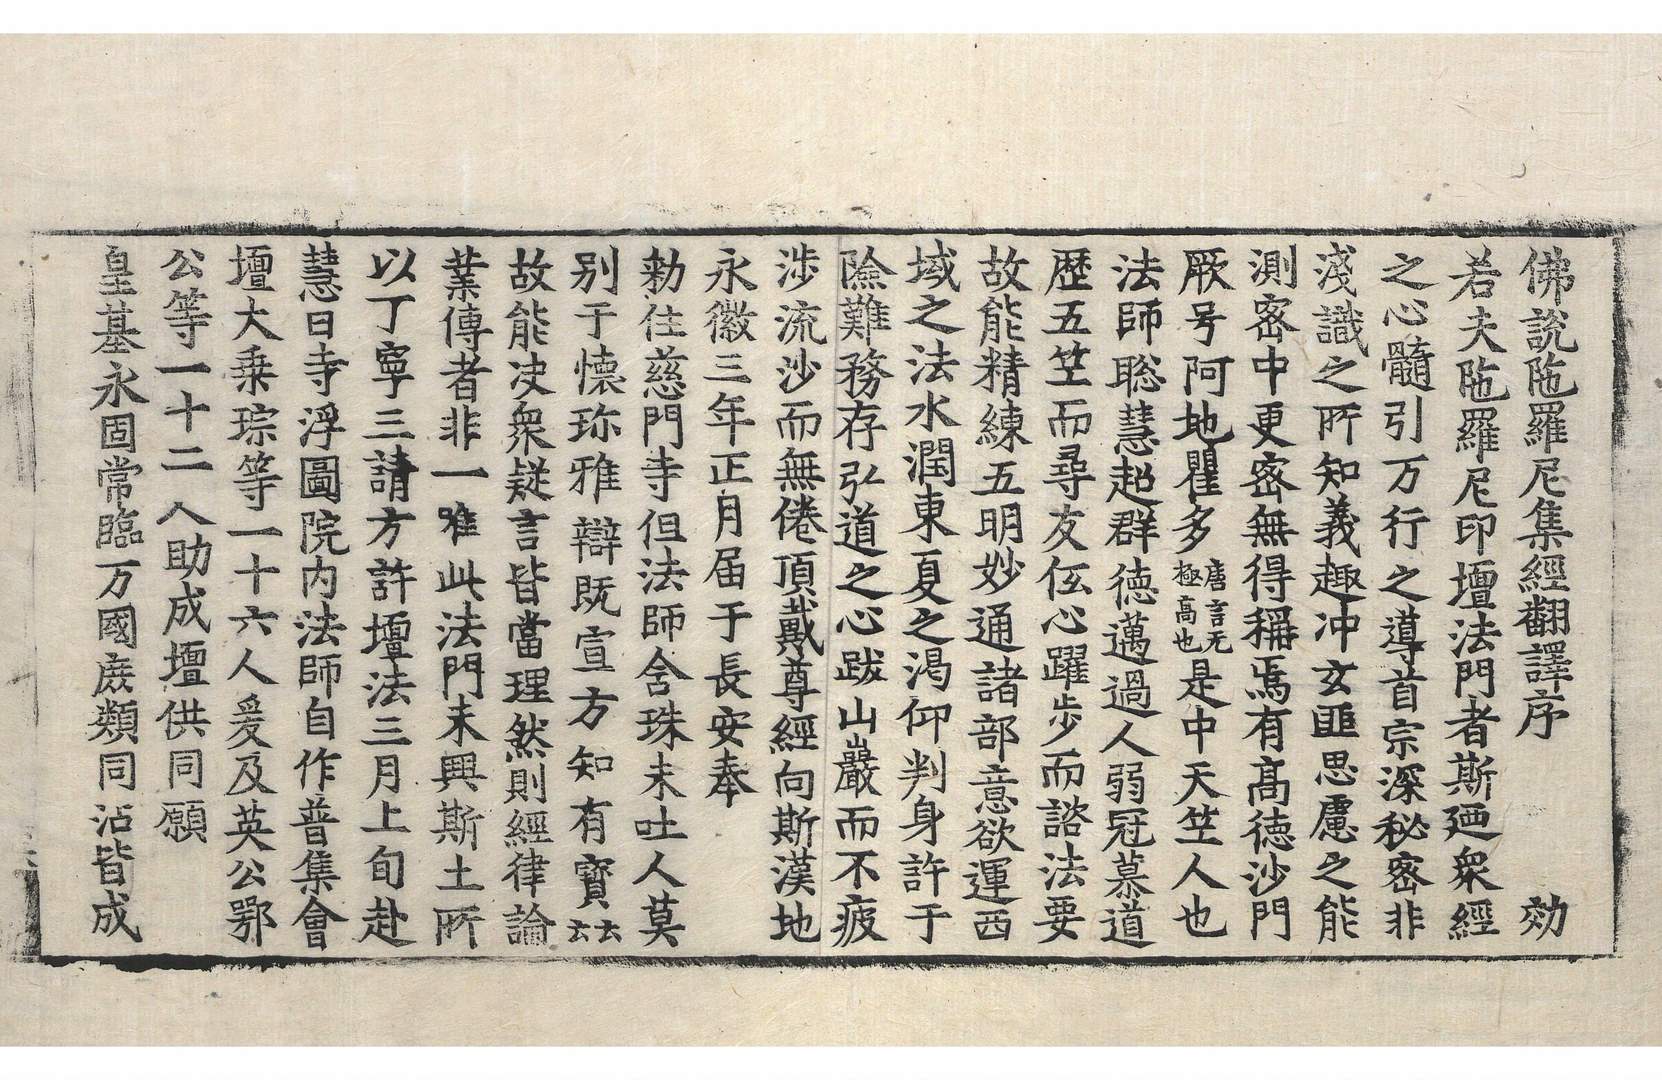 佛說陁羅尼集經翻譯序 効
若夫陁羅尼印壇法門者斯廼衆經
之心髓引万行之導首宗深秘密非
淺識之所知義趣冲玄匪思慮之能
測密中更密無得稱焉有高德沙門
厥号阿地瞿多唐言无極高也是中天竺人也
法師聡慧超群德邁過人弱冠慕道
歷五竺而尋友伍心躍步而諮法要
故能精練五明妙通諸部意欲運西
域之法水潤東夏之渴仰判身許于
險難務存弘道之心跋山巖而不疲
涉流沙而無倦頂戴尊經向斯漢地
永徽三年正月届于長安奉
勑住慈門寺但法師含珠未吐人莫
別于懷珎雅辯既宣方知有寳云云
故能决衆疑言皆當理然則經律論
業傳者非一唯此法門未興斯土所
以丁寧三請方許壇法三月上旬赴
慧日寺浮圖院内法師自作普集會
壇大乗琮等一十六人爰及英公鄂
公等一十二人助成壇供同願
皇基永固常臨万國庻類同沾皆成